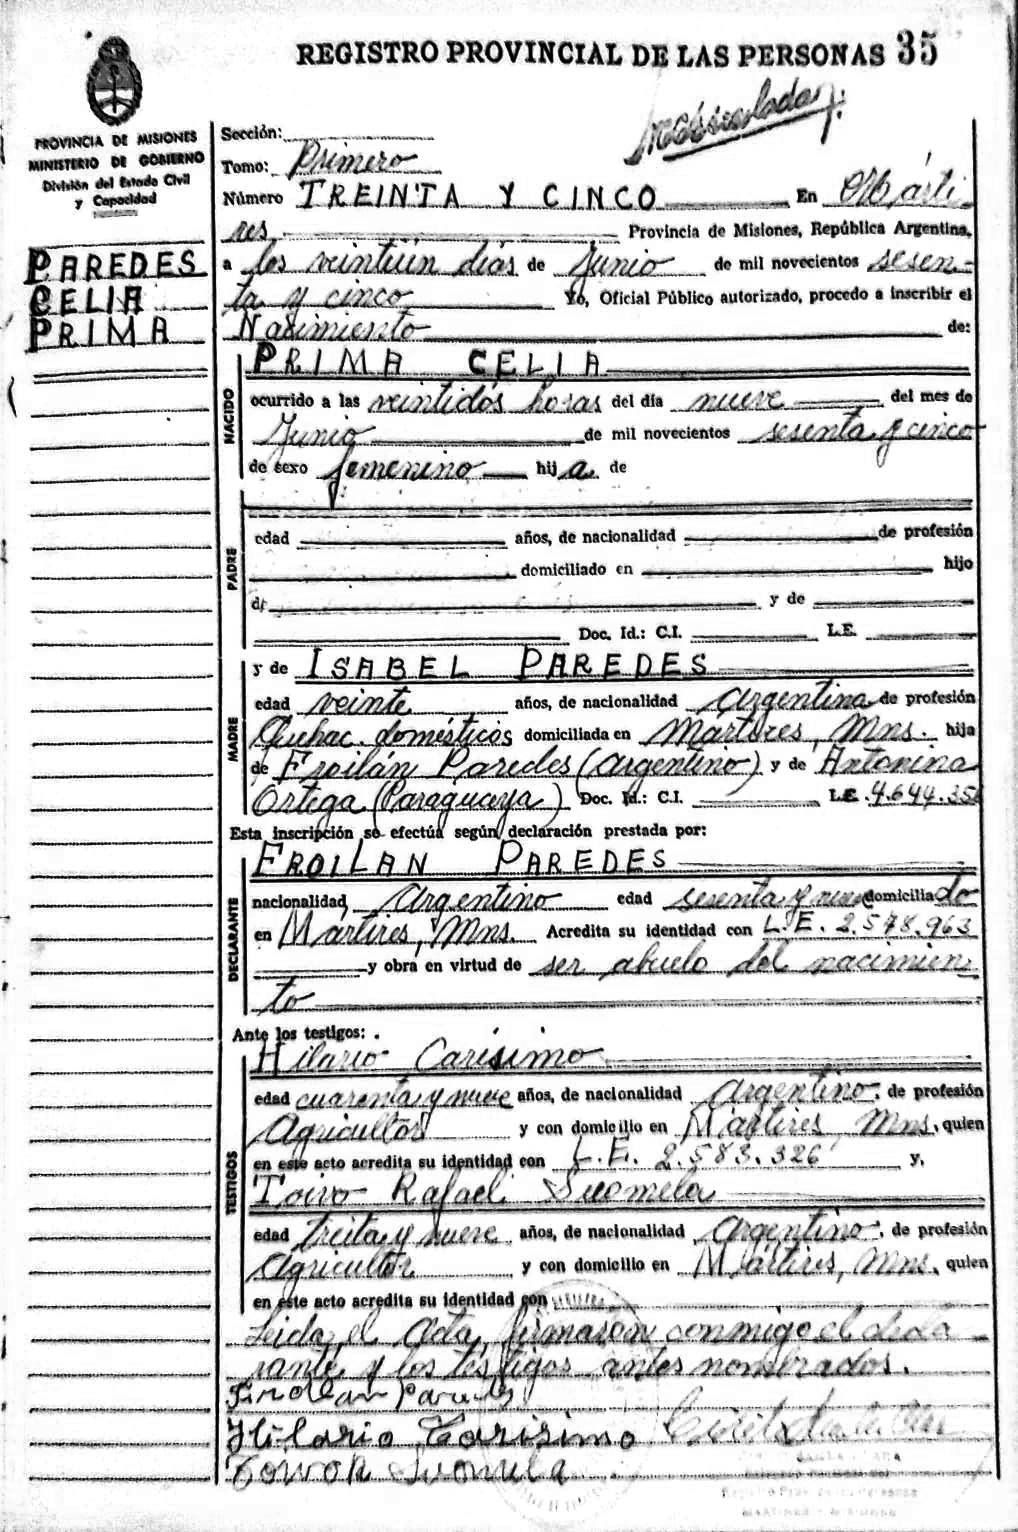 REGISTRO PROVINCIAL DE LAS PERSONAS 35
PROVINCIA DE MISIONES
MINISTERIO DE GOBIERNO
División del Estado Civil
y Capacidad
PAREDES
CELIA
PRIMA
Sección:
Tomo: Primero
Número TREINTA Y CINCO En Márti
res Provincia de Misiones, República Argentina,
a los veintiún días de Junio de mil novecientos sesen-
ta y cinco Yo, Oficial Público autorizado, procedo a inscribir el
Nacimiento de:
NACIDO
PRIMA CELIA
ocurrido a las veintidós horas del día nueve del mes de
Junio de mil novecientos sesenta y cinco
de sexo femenino hij a de
PADRE
edad años, de nacionalidad de profesión
domiciliado en hijo
de y de
Doc. Id.: C.I. L.E.
MADRE
y de ISABEL PAREDES
edad veinte años, de nacionalidad Argentina de profesión
Quehac. domésticos domiciliada en Mártires, Mns. hija
de Froilán Paredes (Argentino) y de Antonina
Ortega (Paraguaya) Doc. Id.: C.I. L.E. 4.644.35
Esta inscripción se efectúa según declaración prestada por:
DECLARANTE
FROILAN PAREDES
nacionalidad Argentino edad sesenta y nueve domiciliado
en Mártires, Mns. Acredita su identidad con L.E. 2.578.963
y obra en virtud de ser abuelo del nacimien
to
Ante los testigos:
TESTIGOS
Hilario Carisimo
edad cuarenta y nueve años, de nacionalidad Argentino, de profesión
Agricultor y con domicilio en Mártires, Mns, quien
en este acto acredita su identidad con L.E. 2.583.326 y,
Toivo Rafaeli Suomela
edad treita y nueve años, de nacionalidad Argentino, de profesión
Agricultor y con domicilio en Mártires, Mns, quien
en este acto acredita su identidad con
Leida el Acta, firmaron conmigo el decla
rante y los testigos antes nombrados.
Froilan Paredes
Hilario Carisimo
Suomela